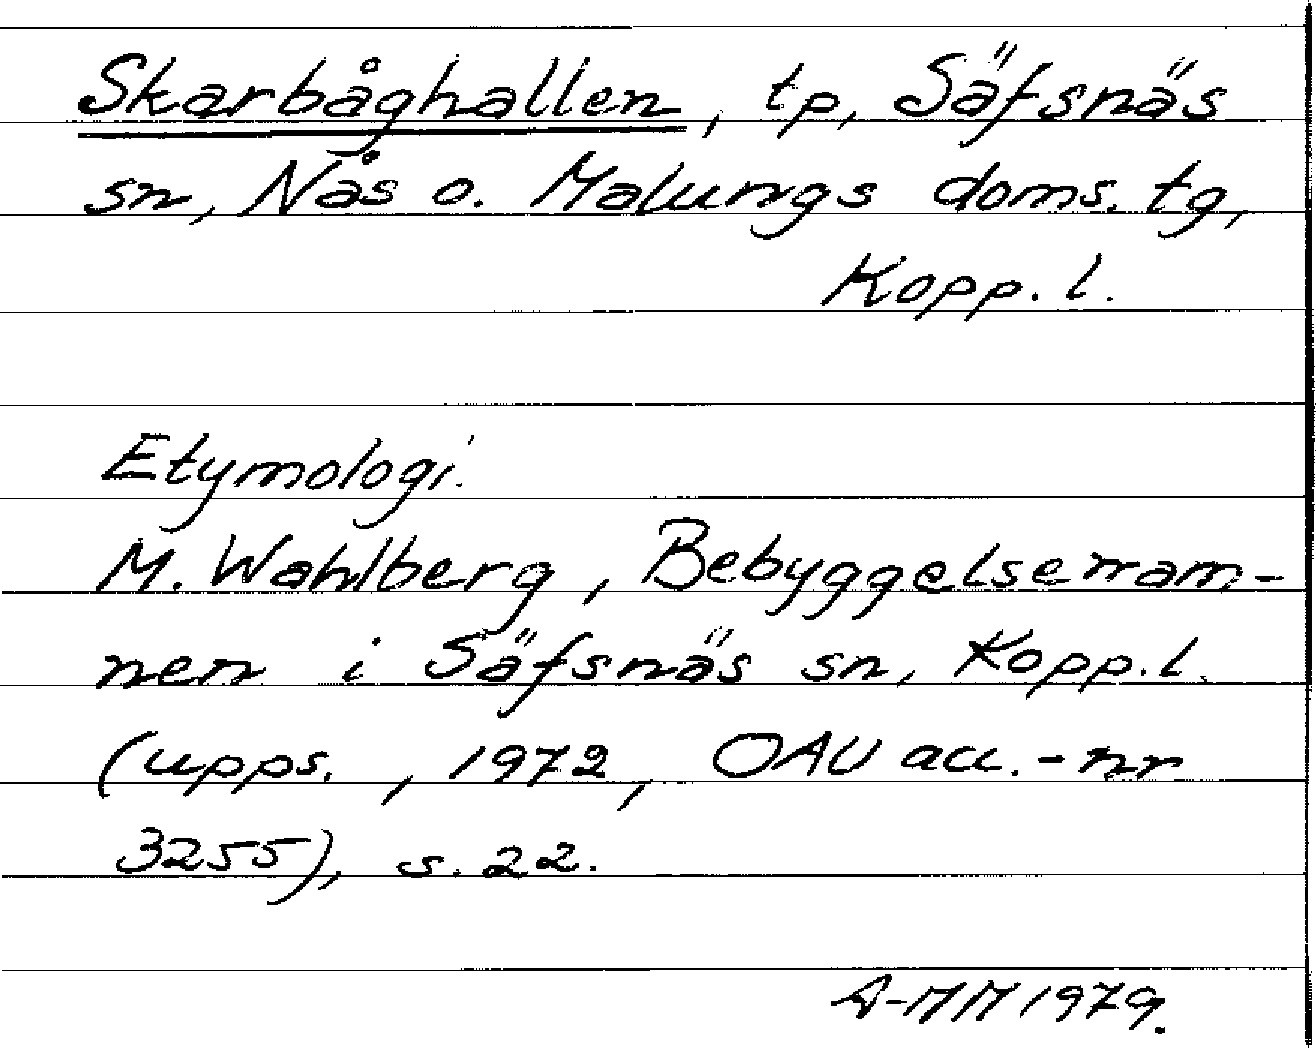 Skarbåghallen, tp, Säfsnäs
sn, Nås o. Malungs doms. tg,
Kopp. l.
Etymologi.
M. Wahlberg, Bebyggelsenam-
nen i Säfsnäs sn, Kopp. l.
(upps., 1972, OAU acc.-nr
3255), s. 22.
A-MM 1979.